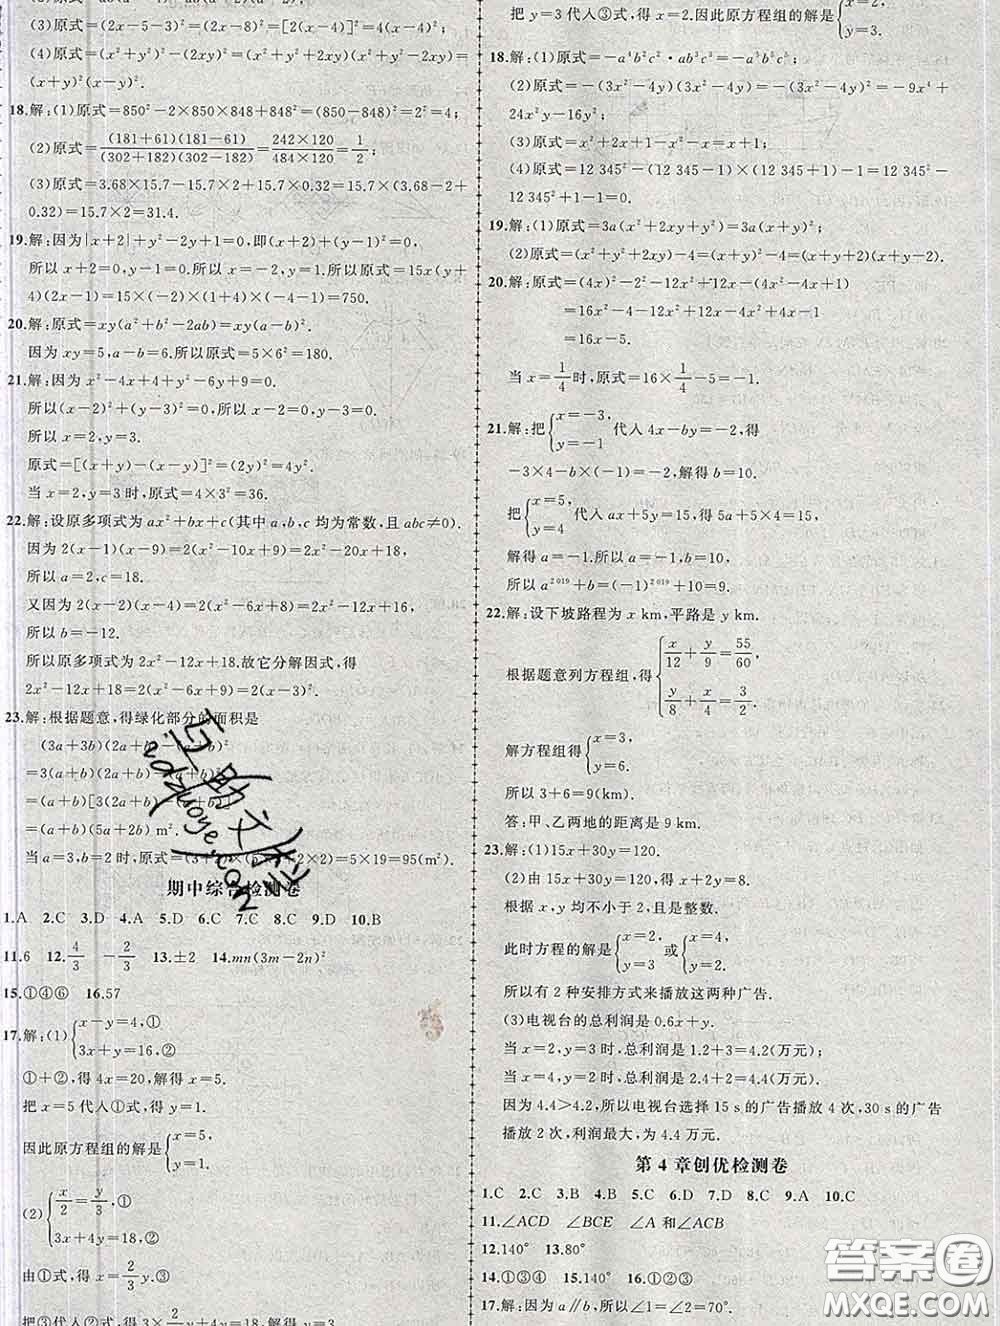 (3)原式=(2x-5-3)²=(2x-8)²=[2(x-4)]²=4(x-4)².
(4)原式=(x²+y²-2xy)(x²+y²+2xy)(x²+y²-2xy)=
(x+y)²(x-y)².
18.解:(1)原式=850²-2×850×848+848²=(850-848)²=2²=4;
(2)原式=(181+61)(181-61)/(302+182)(302-182)=242×120/484×120=1/2;
(3)原式=3.68×15.7-15.7+15.7×0.32=15.7×(3.68-2+
0.32)=15.7×2=31.4.
19.解:因为|x+2|+y²-2y+1=0,即(x+2)+(y-1)²=0,
所以 x+2=0,y-1=0.所以 x=-2,y=1.所以原式=15x(y+
4)(2x-1)=15×(-2)×(1+4)×(-4-1)=750.
20.解:原式=xy(a²+b²-2ab)=xy(a-b)².
因为 xy=5,a-b=6.所以原式=5×6²=180.
21.解:因为 x²-4x+4+y²-6y+9=0.
所以(x-2)²+(y-3)²=0,所以 x-2=0,y-3=0.
所以 x=2,y=3.
原式=[(x+y)-(x-y)]²=(2y)²=4y².
当 x=2,y=3 时,原式=4×3²=36.
22.解:设原多项式为 ax²+bx+c(其中 a,b,c 均为常数,且 abc≠0).
因为 2(x-1)(x-9)=2(x²-10x+9)=2x²-20x+18,
所以 a=2,c=18.
又因为 2(x-2)(x-4)=2(x²-6x+8)=2x²-12x+16,
所以 b=-12.
所以原多项式为 2x²-12x+18.故它分解因式,得
2x²-12x+18=2(x²-6x+9)=2(x-3)².
23.解:根据题意,得绿化部分的面积是
(3a+3b)(2a+b)-(a+b)²
=3(a+b)(2a+b)-(a+b)²
=(a+b)[3(2a+b)-(a+b)]
=(a+b)(5a+2b) m².
当 a=3,b=2 时,原式=(3+2)×(5×3+2×2)=5×19=95(m²).
期中综合检测卷
1.A 2.C 3.D 4.A 5.D 6.C 7.C 8.C 9.D 10.B
11.6 12.4/3 -2/3 13.±2 14.mn(3m-2n)²
15.①④⑥ 16.57
17.解:(1){x-y=4,① 3x+y=16,②
①+②,得 4x=20,解得 x=5.
把 x=5 代入①式,得 y=1.
因此原方程组的解是{x=5, y=1.
(2){x/2=y/3,① 3x+4y=18,②
由①式,得 x=2/3 y.③
把③代入②式,得 3×2/3 y+4y=18,解得 y=3.
把 y=3 代入③式,得 x=2.因此原方程组的解是{x=2, y=3.
18.解:(1)原式=-a⁴b²c²·ab³c³=-a⁵b⁵c⁵;
(2)原式=-(3x-4y)(3x-4y)=-(3x-4y)²=-9x²+
24x²y-16y²;
(3)原式=x²+x-x²-x+x+1=x+1;
(4)原式=12 345²-(12 345-1)×(12 345+1)=12 345²-
12 345²+1=0+1=1.
19.解:(1)原式=3a(x²+2xy+y²)=3a(x+y)²;
(2)原式=(x²+y²+2xy)-4=(x+y)²-4=(x+y+2)(x+y-2).
20.解:原式=(4x)²-2²-12x²+4x-(4x²-4x+1)
=16x²-4-12x²+4x-4x²+4x-1
=16x-5.
当 x=1/4时,原式=16×1/4-5=-1.
21.解:把{x=-3, y=-1 代入 4x-by=-2,得
-3×4-b×(-1)=-2,解得 b=10.
把{x=5, y=4 代入 ax+5y=15,得 5a+5×4=15,
解得 a=-1.所以 a=-1,b=10,
所以 a²⁰¹⁹+b=(-1)²⁰¹⁹+10=9.
22.解:设下坡路程为 x km,平路是 y km.
根据题意列方程组,得{x/12+y/9=55/60, y/8+x/4=3/2,
解方程组得{x=3, y=6.
所以 3+6=9(km).
答:甲、乙两地的距离是 9 km.
23.解:(1)15x+30y=120.
(2)由 15x+30y=120,得 x=8-2y.
根据 x,y 均不小于 2,且是整数.
此时方程的解是{x=2, y=3或{x=4, y=2.
所以有 2 种安排方式来播放这两种广告.
(3)电视台的总利润是 0.6x+y.
当 x=2,y=3 时,总利润是 1.2+3=4.2(万元);
当 x=4,y=2 时,总利润是 2.4+2=4.4(万元).
因为 4.4>4.2,所以电视台选择 15 s 的广告播放 4 次,30 s 的广告
播放 2 次,利润最大,为 4.4 万元.
第 4 章创优检测卷
1.C 2.C 3.B 4.B 5.C 6.D 7.D 8.C 9.A 10.C
11.∠ACD ∠BCE ∠A 和∠ACB
12.140° 13.80°
14.①③④ 15.140° 16.①②③
17.解:因为 a∥b,所以∠1=∠2=70°.
答案圈
MXQE.COM